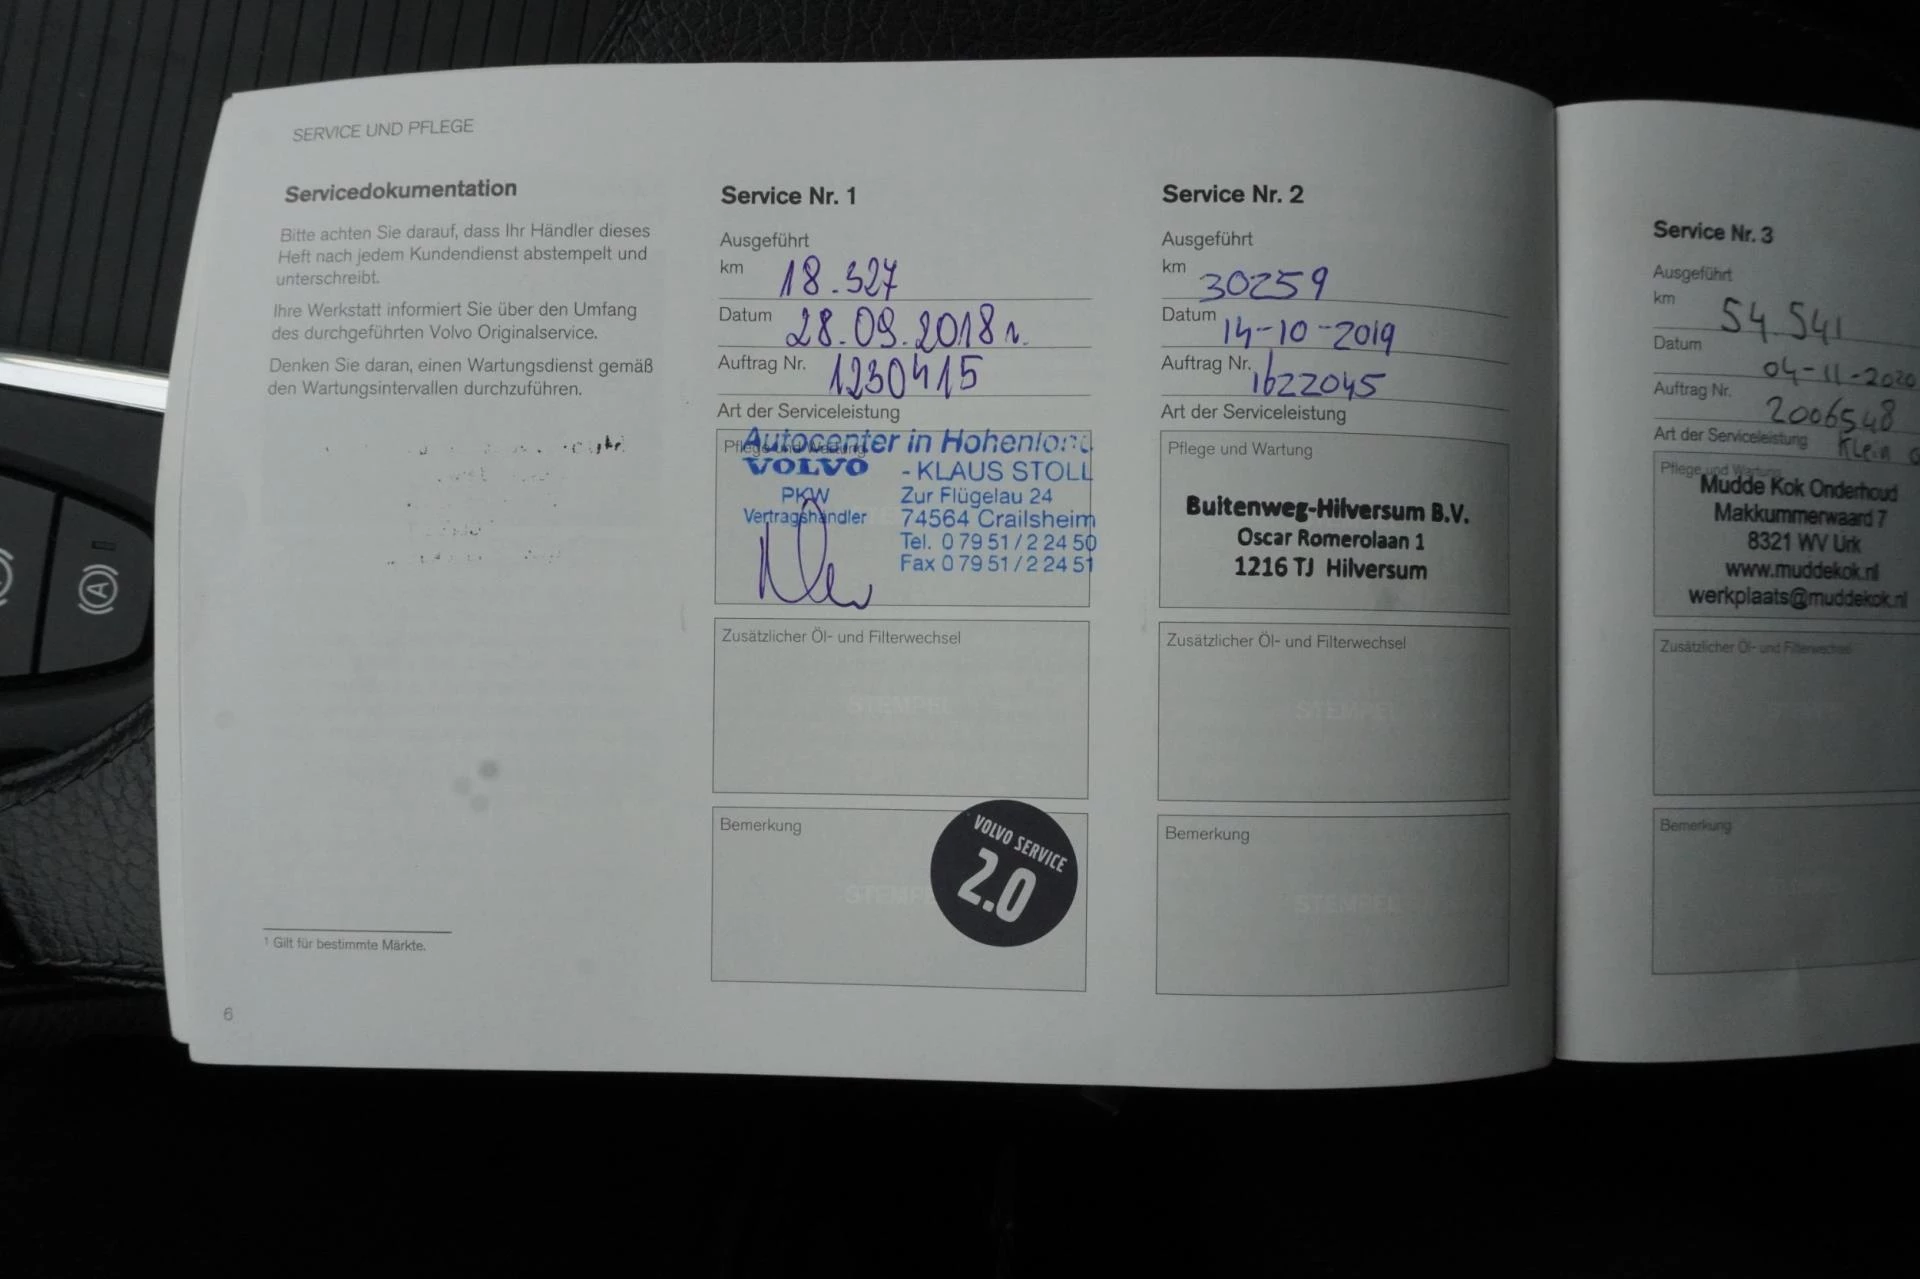 SERVICE UND PFLEGE
Servicedokumentation
Bitte achten Sie darauf, dass Ihr Händler dieses
Heft nach jedem Kundendienst abstempelt und
unterschreibt.
Ihre Werkstatt informiert Sie über den Umfang
des durchgeführten Volvo Originalservice.
Denken Sie daran, einen Wartungsdienst gemäß
den Wartungsintervallen durchzuführen.
1 Gilt für bestimmte Märkte.
6
Service Nr. 1
Ausgeführt
km 18.527
Datum 28.09.2018 r.
Auftrag Nr. 1230415
Art der Serviceleistung
Pflege und Wartung
Autocenter in Hohenlohe
VOLVO - KLAUS STOLL
PKW Zur Flügelau 24
Vertragshändler 74564 Crailsheim
Tel. 0 79 51 / 2 24 50
Fax 0 79 51 / 2 24 51
Zusätzlicher Öl- und Filterwechsel
STEMPEL
Bemerkung
STEMPEL
VOLVO SERVICE
2.0
Service Nr. 2
Ausgeführt
km 30259
Datum 14-10-2019
Auftrag Nr. 1622045
Art der Serviceleistung
Pflege und Wartung
Buitenweg-Hilversum B.V.
Oscar Romerolaan 1
1216 TJ Hilversum
Zusätzlicher Öl- und Filterwechsel
STEMPEL
Bemerkung
STEMPEL
Service Nr. 3
Ausgeführt
km 54.541
Datum 04-11-2020
Auftrag Nr. 2006548
Art der Serviceleistung Klein
Pflege und Wartung
Mudde Kok Onderhoud
Makkummerwaard 7
8321 WV Urk
www.muddekok.nl
werkplaats@muddekok.nl
Zusätzlicher Öl- und Filterwechsel
Bemerkung